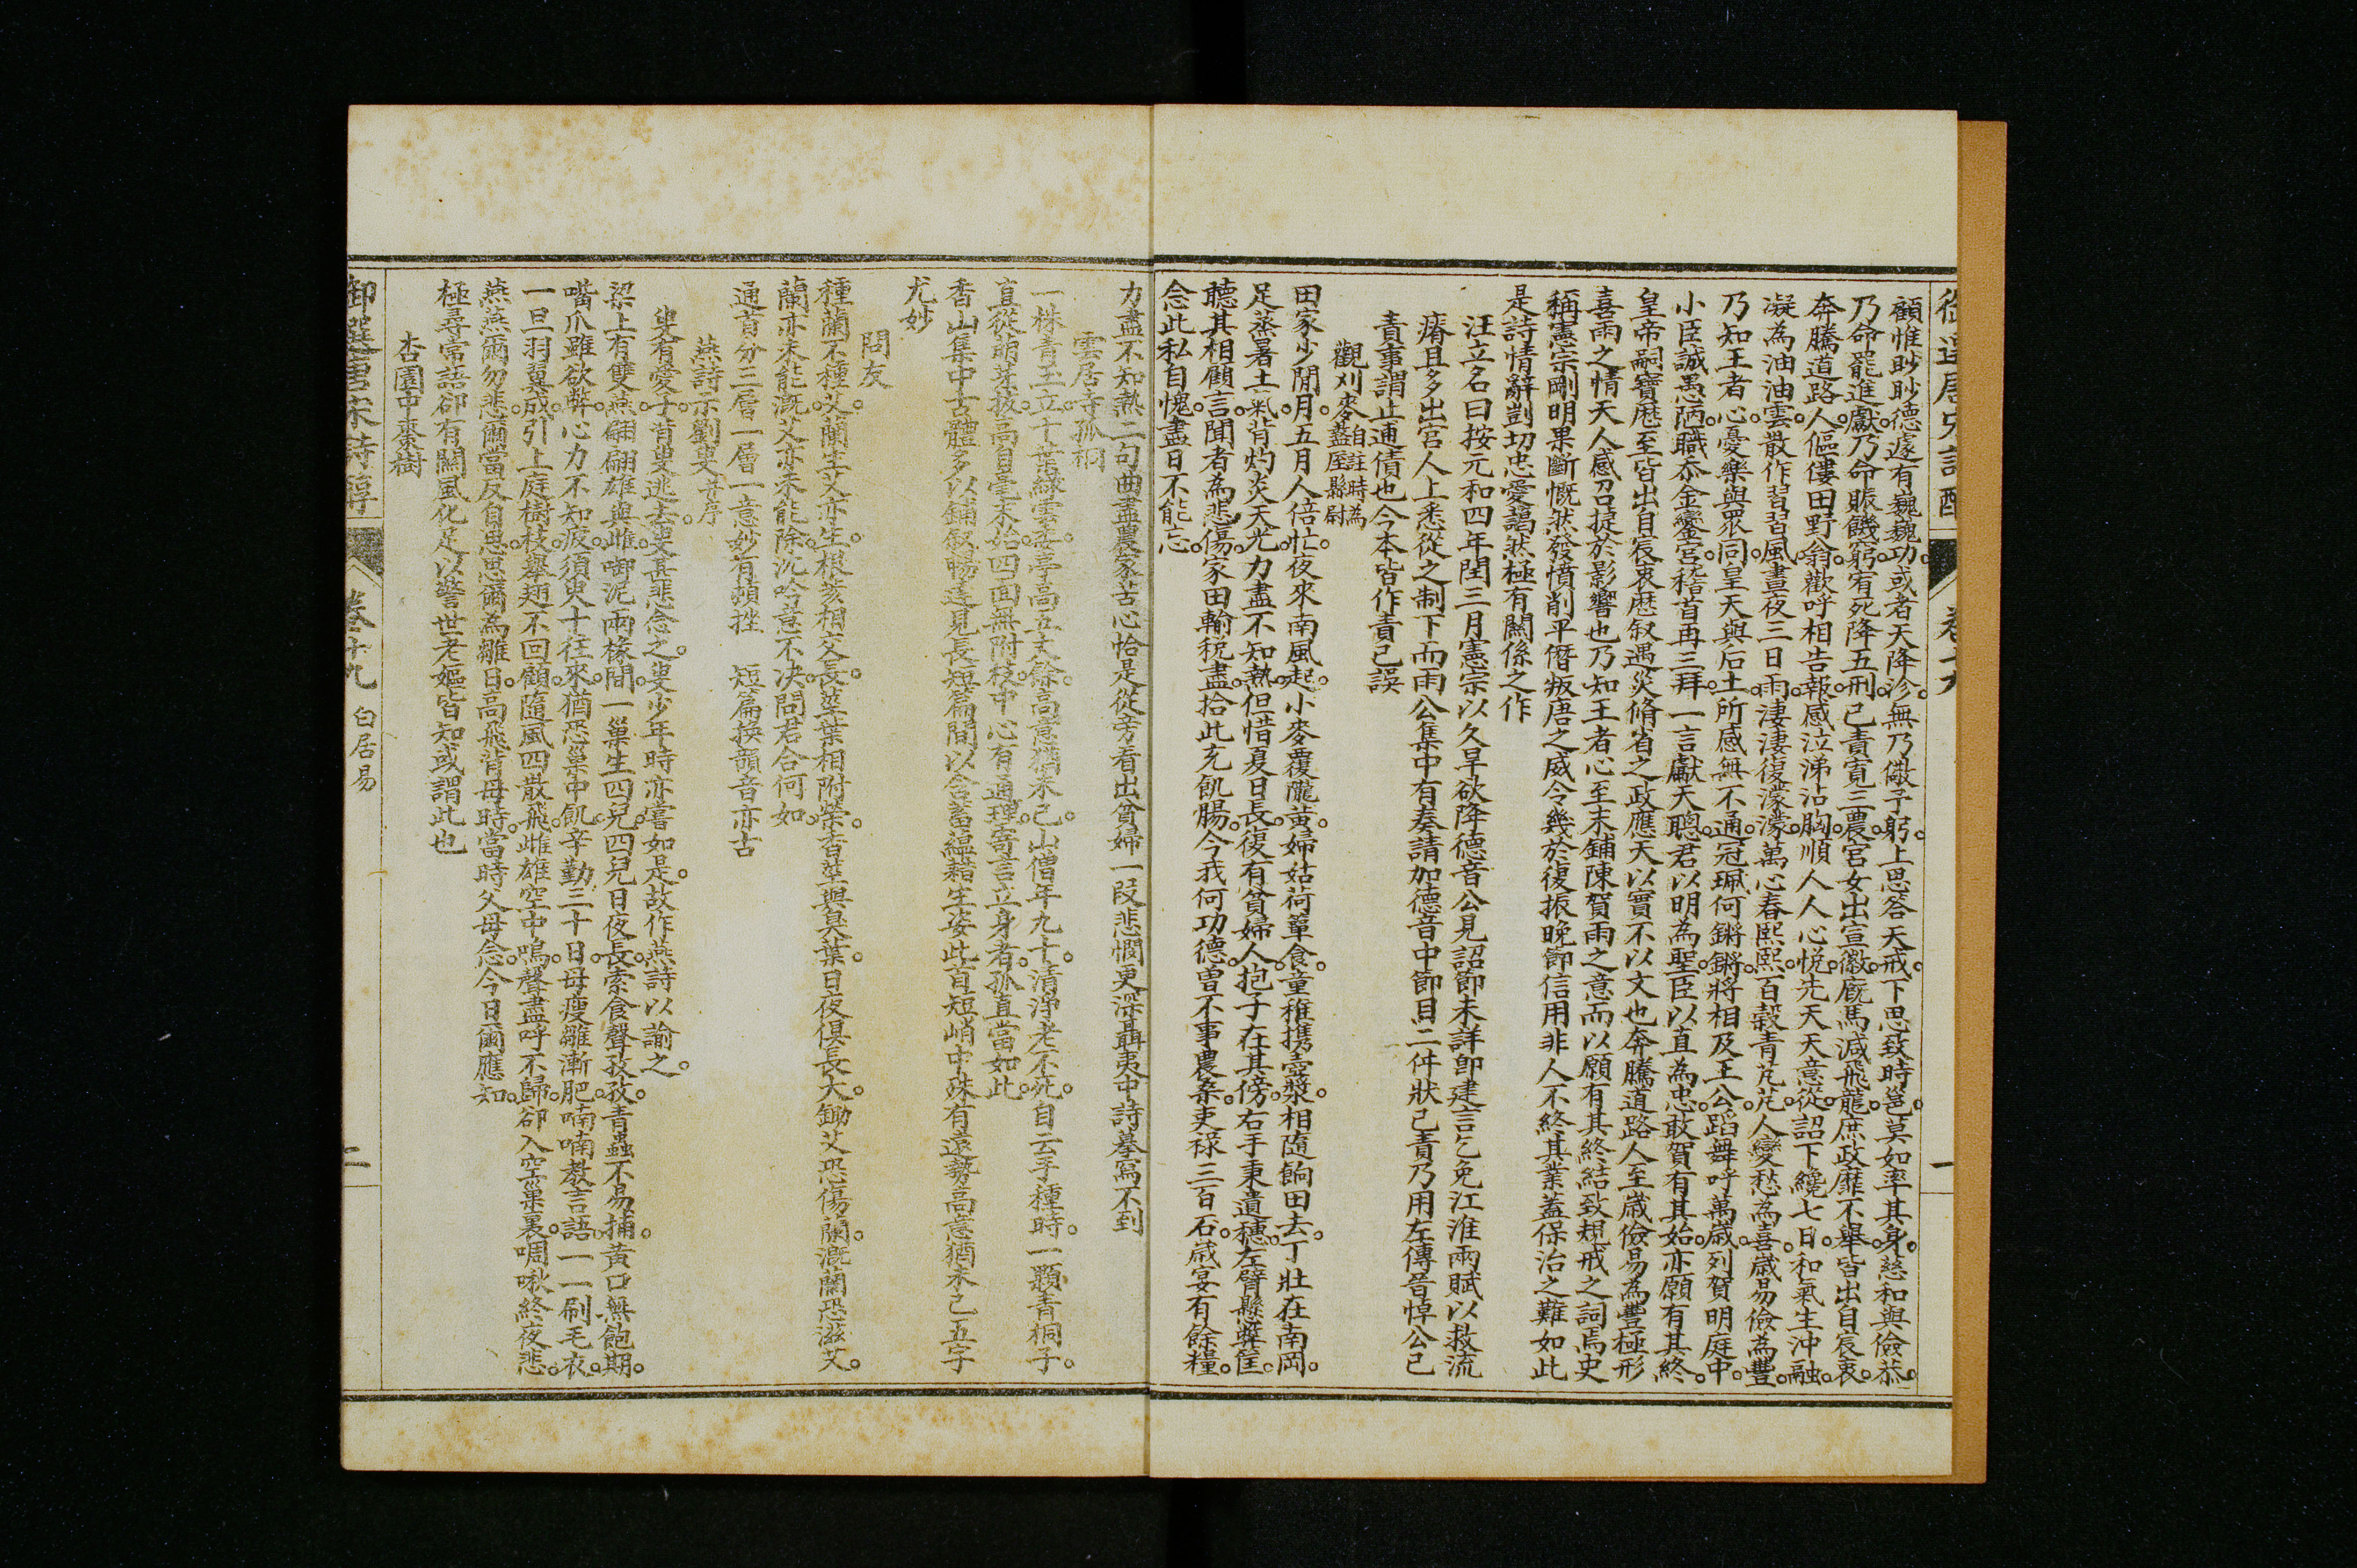 顧惟眇眇德遽有巍巍功或者天降沴無乃儆予躬上思答天戒下思致時邕莫如率其身慈和與儉恭
乃命罷進獻乃命賑饑窮宥死降五刑已責寬三農宮女出宣徽廄馬減飛龍庶政靡不舉皆出自宸衷
奔騰道路人傴僂田野翁歡呼相告報感泣涕沾胸順人人心悅先天天意從詔下纔七日和氣生沖融
凝為油油雲散作習習風晝夜三日雨淒淒復濛濛萬心春熙熙百穀青芃芃人變愁為喜歲易儉為豐
乃知王者心憂樂與眾同皇天與后土所感無不通冠珮何鏘鏘將相及王公蹈舞呼萬歲列賀明庭中
小臣誠愚陋職忝金鑾宮稽首再三拜一言獻天聰君以明為聖臣以直為忠敢賀有其始亦願有其終
皇帝嗣寶厯至皆出自宸衷厯叙遇災脩省之政應天以實不以文也奔騰道路人至歲儉易為豐極形
喜雨之情天人感召捷於影響也乃知王者心至末鋪陳賀雨之意而以願有其終結致規戒之詞焉史
稱憲宗剛明果斷慨然發憤削平僭叛唐之威令幾於復振晚節信用非人不終其業蓋保治之難如此
是詩情辭剴切忠愛藹然極有關係之作
汪立名曰按元和四年閏三月憲宗以久旱欲降德音公見詔節未詳卽建言乞免江淮兩賦以救流
瘠且多出宮人上悉從之制下而雨公集中有奏請加德音中節目二件狀已責乃用左傳晉悼公已
責事謂止逋債也今本皆作責己誤
觀刈麥自註時為盩厔縣尉
田家少閒月五月人倍忙夜來南風起小麥覆隴黃婦姑荷簞食童稚携壺漿相隨餉田去丁壯在南岡
足蒸暑土氣背灼炎天光力盡不知熱但惜夏日長復有貧婦人抱子在其傍右手秉遺穗左臂懸獘筐
聽其相顧言聞者為悲傷家田輸稅盡拾此充飢腸今我何功德曾不事農桑吏祿三百石歲宴有餘糧
念此私自愧盡日不能忘
力盡不知熱二句曲盡農家苦心恰是從旁看出貧婦一段悲憫更深聶夷中詩摹寫不到
雲居寺孤桐
一株青玉立千葉綠雲委亭亭五丈餘高意猶未已山僧年九十清淨老不死自云手種時一顆青桐子
直從萌芽拔高自毫末始四面無附枝中心有通理寄言立身者孤直當如此
香山集中古體多以鋪叙暢達見長短篇間以含蓄蘊藉生姿此首短峭中殊有遠勢高意猶未已五字
尤妙
問友
種蘭不種艾蘭生艾亦生根荄相交長莖葉相附榮香莖與臭葉日夜俱長大鋤艾恐傷蘭溉蘭恐滋艾
蘭亦未能溉艾亦未能除沉吟意不决問君合何如
通首分三層一層一意妙有頓挫 短篇換韻音亦古
燕詩示劉叟幷序
叟有愛子背叟逃去叟甚悲念之叟少年時亦嘗如是故作燕詩以諭之
梁上有雙燕翩翩雄與雌啣泥兩椽間一巢生四兒四兒日夜長索食聲孜孜青蟲不易捕黃口無飽期
嘴爪雖欲弊心力不知疲須臾十往來猶恐巢中飢辛勤三十日母瘦雛漸肥喃喃教言語一一刷毛衣
一旦羽翼成引上庭樹枝舉翅不回顧隨風四散飛雌雄空中鳴聲盡呼不歸卻入空巢裏啁啾終夜悲
燕燕爾勿悲爾當反自思思爾為雛日高飛背母時當時父母念今日爾應知
極尋常語卻有關風化足以警世老嫗皆知或謂此也
杏園中棗樹
御選唐宋詩醇 卷十九 白居易 二